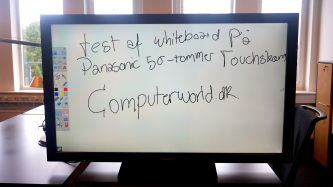 test af whiteboard På
Panasonic 50-tommer Touchskærm
Computerworld.dk